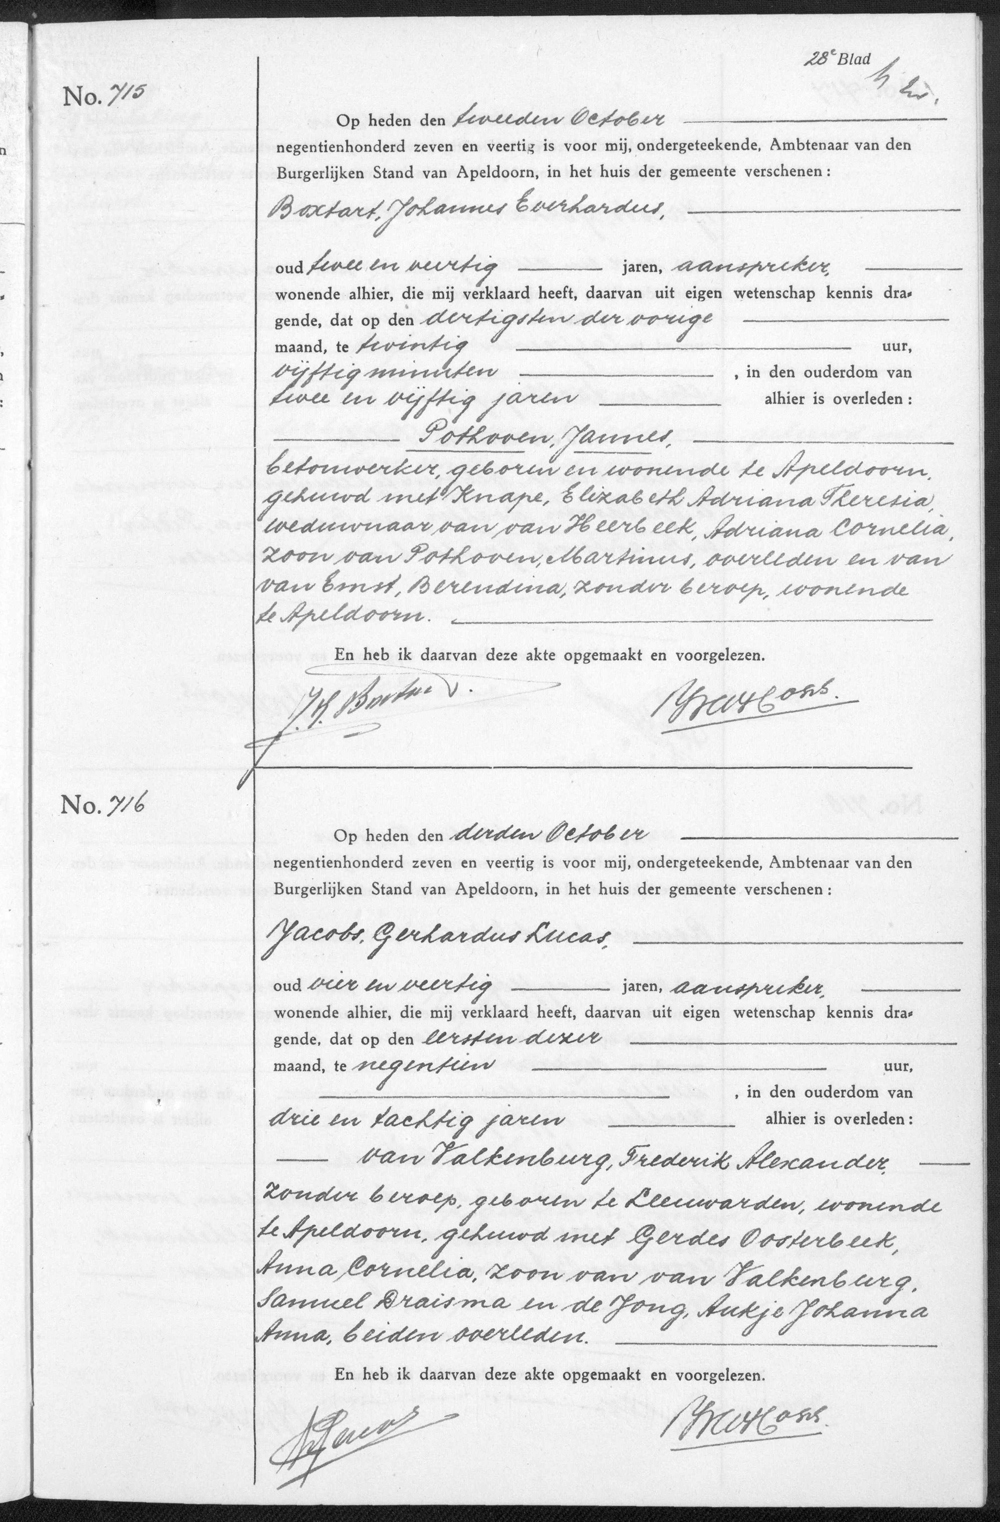 28e Blad
No. 715
Op heden den tweeden October
negentienhonderd zeven en veertig is voor mij, ondergeteekende, Ambtenaar van den
Burgerlijken Stand van Apeldoorn, in het huis der gemeente verschenen:
Boxtart, Johannes Everhardus,
oud twee en veertig jaren, aanspreker,
wonende alhier, die mij verklaard heeft, daarvan uit eigen wetenschap kennis dra-
gende, dat op den dertigsten der vorige
maand, te twintig uur,
vijftig minuten , in den ouderdom van
twee en vijftig jaren alhier is overleden:
Pothoven, Jannes,
betonwerker, geboren en wonende te Apeldoorn,
gehuwd met Knape, Elizabeth Adriana Theresia,
weduwnaar van van Heerbeek, Adriana Cornelia,
zoon van Pothoven, Martinus, overleden en van
van Emst, Berendina, zonder beroep, wonende
te Apeldoorn.
En heb ik daarvan deze akte opgemaakt en voorgelezen.
No. 716
Op heden den derden October
negentienhonderd zeven en veertig is voor mij, ondergeteekende, Ambtenaar van den
Burgerlijken Stand van Apeldoorn, in het huis der gemeente verschenen:
Jacobs, Gerhardus Lucas,
oud vier en veertig jaren, aanspreker,
wonende alhier, die mij verklaard heeft, daarvan uit eigen wetenschap kennis dra-
gende, dat op den eersten dezer
maand, te negentien uur,
, in den ouderdom van
drie en tachtig jaren alhier is overleden:
van Valkenburg, Frederik Alexander,
zonder beroep, geboren te Leeuwarden, wonende
te Apeldoorn, gehuwd met Gerdes Oosterbeek,
Anna Cornelia, zoon van van Valkenburg,
Samuel Draisma en de Jong, Aukje Johanna
Anna, beiden overleden.
En heb ik daarvan deze akte opgemaakt en voorgelezen.